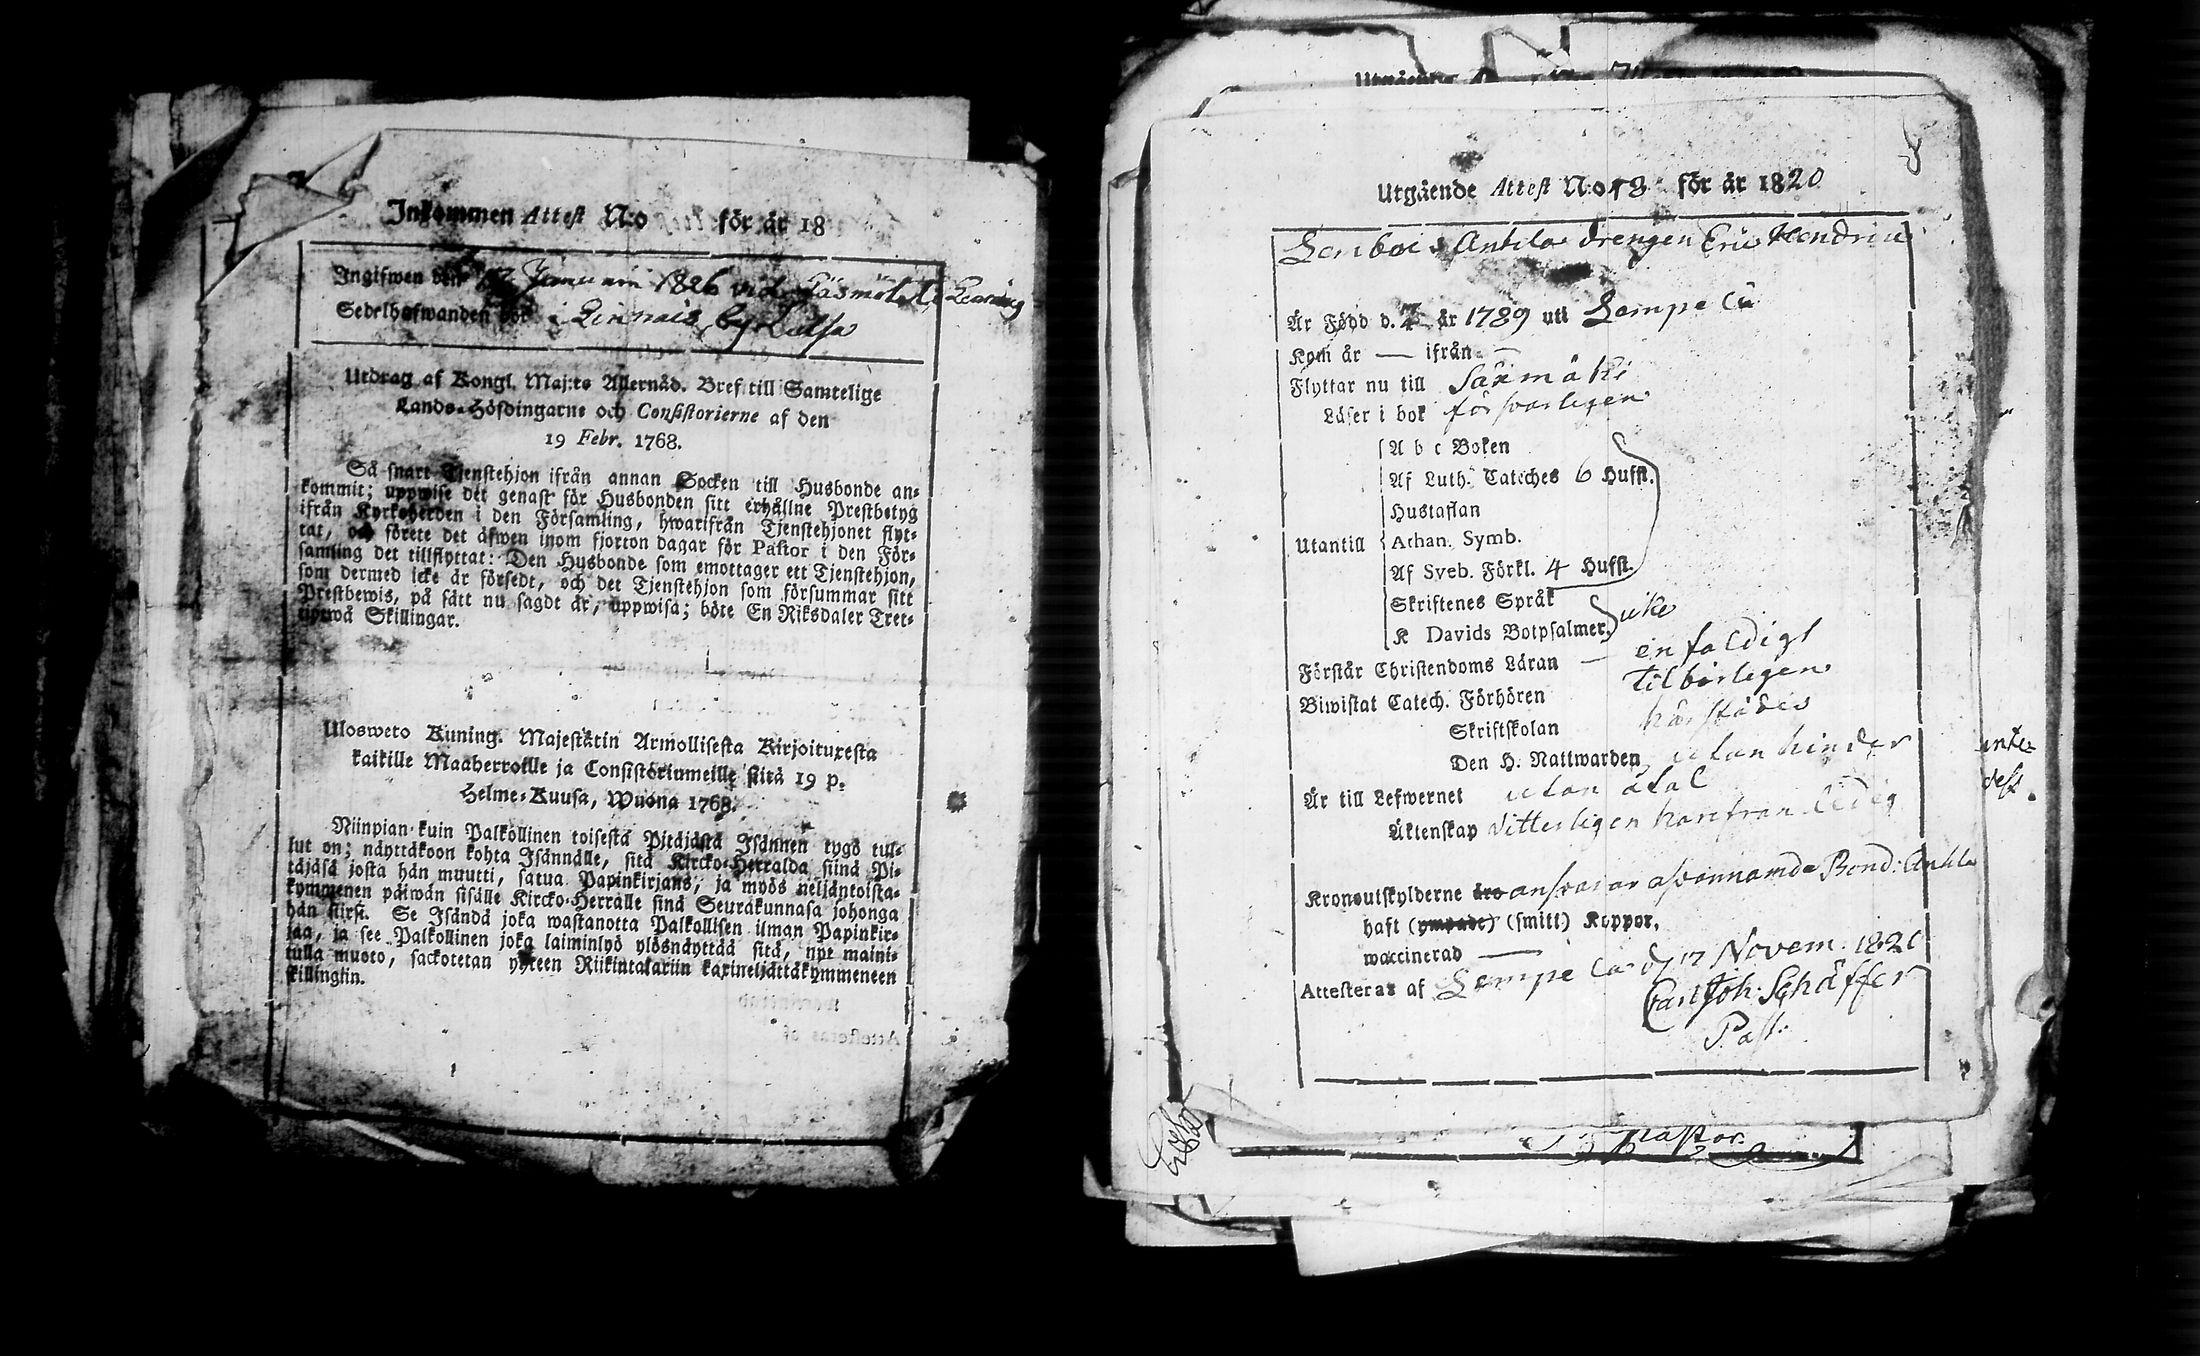 Inkommen Attest N:o för år 18
Ingifwen den Januarii 1826 vid Läsmötet i
Sedelhafwanden bor i Linnais by
Utdrag af Kongl. Maj:ts Allernåd. Bref till Samtelige
Lands-Höfdingarne och Consistorierne af den
19 Febr. 1768.
Så snart Tjenstehjon ifrån annan Socken till Husbonde an-
kommit; uppwise det genast för Husbonden sitt erhållne Prestbetyg
ifrån Kyrkoherden i den Församling, hwarifrån Tjenstehjonet flyt-
tat, och förete det äfwen inom fjorton dagar för Pastor i den För-
samling det tillflyttat: Den Husbonde som emottager ett Tjenstehjon,
som dermed icke är försedt, och det Tjenstehjon som försummar sitt
Prestbewis, på sätt nu sagdt är, uppwisa; böte En Riksdaler Tret-
tiotwå Skillingar.
Ulosweto Kuning. Majestätin Armollisesta Kirjoituxesta
kaikille Maaherroille ja Consistoriumeille siitä 19 p.
Helme-Kuusa, Wuona 1768.
Niinpian kuin Palkollinen toisesta Pitäjästä Isännen tygö tul-
lut on; näyttäkoon kohta Isännälle, sitä Kircko-Herralda siinä Pi-
täjäsä josta hän muutti, saatua Papinkirjans, ja myös neljäntoista-
kymmenen päiwän sisälle Kircko-Herralle sinä Seurakunnasa johonga
hän siirsi. Se Isändä joka wastanotta Palkollisen ilman Papinkir-
jaa, ja see Palkollinen joka laiminlyö ylösnäyttää sitä, nyt maini-
tulla muoto, sackotetan yhteen Riikintalariin kaxineljättäkymmeneen
skillingiin.
Utgående Attest N:o 18 för år 1820
Lembois Anttila drengen Eric Hendric
År Född d. 7 år 1789 uti Lempe
Kom år — ifrån —
Flyttar nu till Säxmäki
Läser i bok försvarligen
A b c Boken
Af Luth. Cateches 6 Hufst.
Hustaflan
Utantill Athan. Symb.
Af Sveb. Förkl. 4 Hufst.
Skriftenes Språk
K Davids Botpsalmer. icke
Förstår Christendoms Läran — enfaldigt
Biwistat Catech. Förhören tilbörligen
Skriftskolan härstädes
Den H. Nattwarden utan hinder
Är till Lefwernet utan åtal
Äktenskap vitterligen härifrån ledig
Kronoutskylderne äro ansvarar ofvannämde Bond: Anttila
haft (ympade) (smitt) Koppor.
waccinerad —
Attesteras af Lempe d 17 Novem. 1820
Carl Joh: Schäffer
Past:
Pastor.